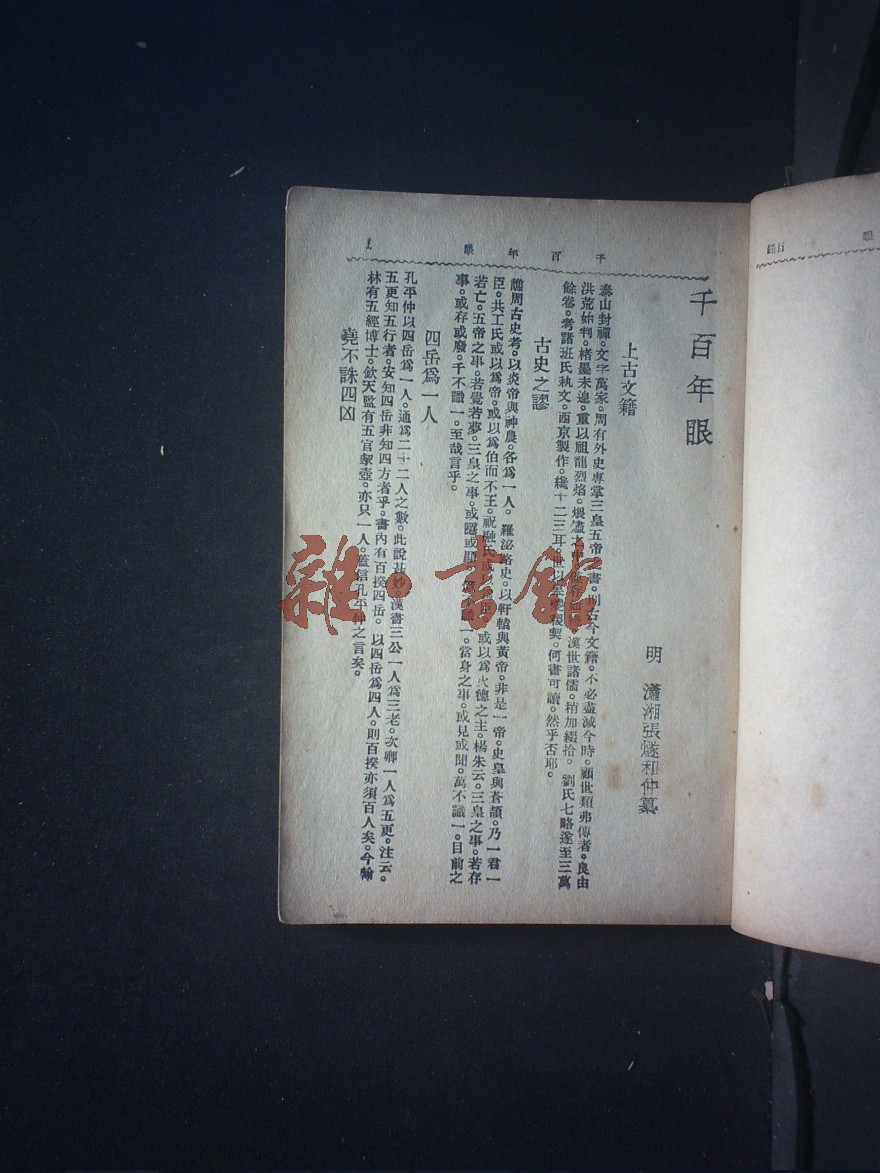 千百年眼
1
千百年眼
明 瀟湘張燧和仲纂
上古文籍
泰山封禪。文字萬家。周有外史專掌三皇五帝 書。則古今文籍。不必盡減今時。顧世類弗傳者。良由
洪荒始判。楮墨未遑。重以祖龍烈焰。煨盡 漢世諸儒。稍加綴拾。劉氏七略遂至三萬
餘卷。考諸班氏執文。西京製作。纔十二三耳。世以 契。何書可讀。然乎否耶。
古史之謬
譙周古史考。以炎帝與神農。各爲一人。羅泌路史。以軒轅與黃帝。非是一帝。史皇與蒼頡。乃一君一
臣。共工氏或以爲帝。或以爲伯而不王。祝融氏或以 或以爲火德之主。楊朱云。三皇之事。若存
若亡。五帝之事。若覺若夢。三皇之事。或隱或顯。 一。當身之事。或見或聞。萬不識一。目前之
事。或存或廢。千不識一。至哉言乎。
四岳爲一人
孔平仲以四岳爲一人。通爲二十二人之數。此說甚妙。漢書三公一人爲三老。次卿一人爲五更。注云。
五更知五行者。安知四岳非知四方者乎。書內有百揆四岳。以四岳爲四人。則百揆亦須百人矣。今翰
林有五經博士。欽天監有五官挈壺。亦只一人。蓋信孔平仲之言矣。
堯不誅四凶
眼
目錄
雜·書館